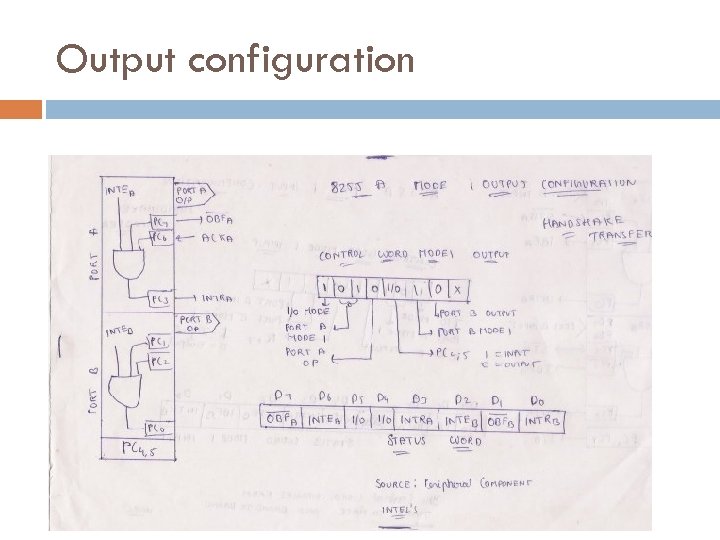 Output configuration
8255 A MODE 1 OUTPUT CONFIGURATION
HANDSHAKE
TRANSFER
INTEA
PORT A
O/P
PC7
OBFA
PC6
ACKA
PORT A
PC3
INTRA
PORT B
OP
INTEB
PC1
PC2
PORT B
PC0
PC4,5
CONTROL WORD MODE 1 OUTPUT
1 0 1 0 I/O 1 0 X
I/O MODE
PORT A
MODE 1
PORT A
OP
PORT B OUTPUT
PORT B MODE 1
PC4,5 1 = INPUT
0 = OUTPUT
D7 D6 D5 D4 D3 D2 D1 D0
OBFA INTEA I/O I/O INTRA INTEB OBFB INTRB
STATUS WORD
SOURCE : Peripheral COMPONENT
INTEL'S